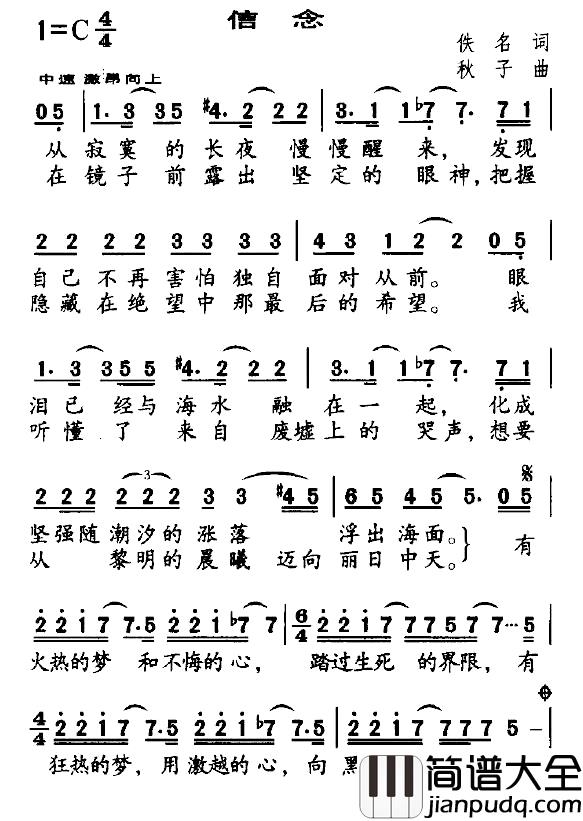 信念
1=C 4/4
佚名 词
秋子 曲
中速 激昂向上
0 5 | 1. 3 3 5 #4. 2 2 2 | 3. 1 1 b7 7. 7 1 |
从寂寞的长夜 慢慢醒来, 发现
在镜子前露出 坚定的眼神, 把握
2 2 2 2 3 3 3 3 | 4 3 1 2 2 0 5 |
自己不再害怕独自 面对从前。 眼
隐藏在绝望中那最 后的希望。 我
1. 3 3 5 5 #4. 2 2 2 | 3. 1 1 b7 7. 7 1 |
泪已经与海水 融在一起, 化成
听懂了来自 废墟上的哭声, 想要
2 2 2 2 2 2 3 3 #4 5 | 6 5 4 5 5. 0 5 |
坚强随潮汐的涨落 浮出海面。 有
从黎明的晨曦迈向 丽日中天。
2 2 1 7 7. 5 2 2 1 b7 7 | 6/4 2 2 1 7 7 7 5 7 7 ··· 5 |
火热的梦 和不悔的心, 踏过生死 的界限, 有
4/4 2 2 1 7 7. 5 2 2 1 b7 7. 5 | 2 2 2 1 7 7 7 5 - |
狂热的梦, 用激越的心, 向黑
简谱大全
jianpudq.com